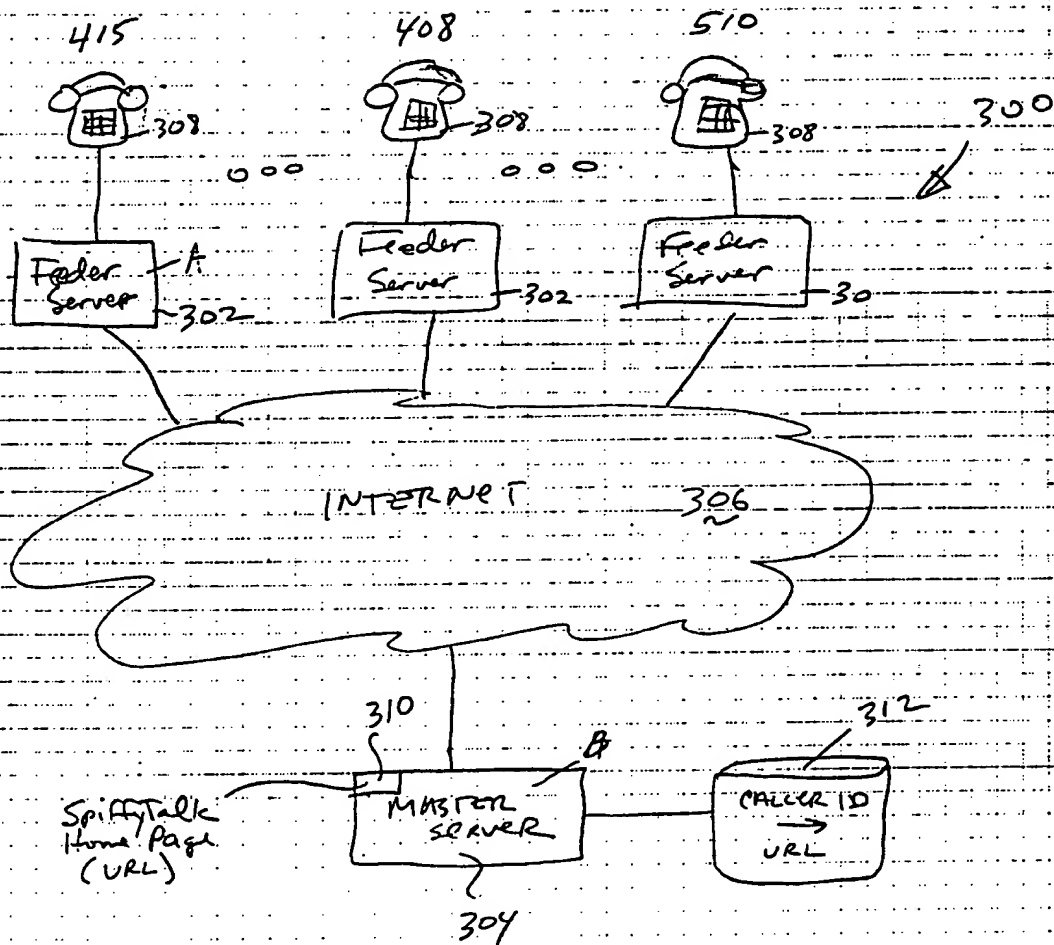 415
408
510
308
308
308
300
Feeder
Server
A
302
Feeder
Server
302
Feeder
Server
30
INTERNET
306
310
312
B
SpiffyTalk
Home Page
(URL)
MASTER
SERVER
CALLER ID
→
URL
304